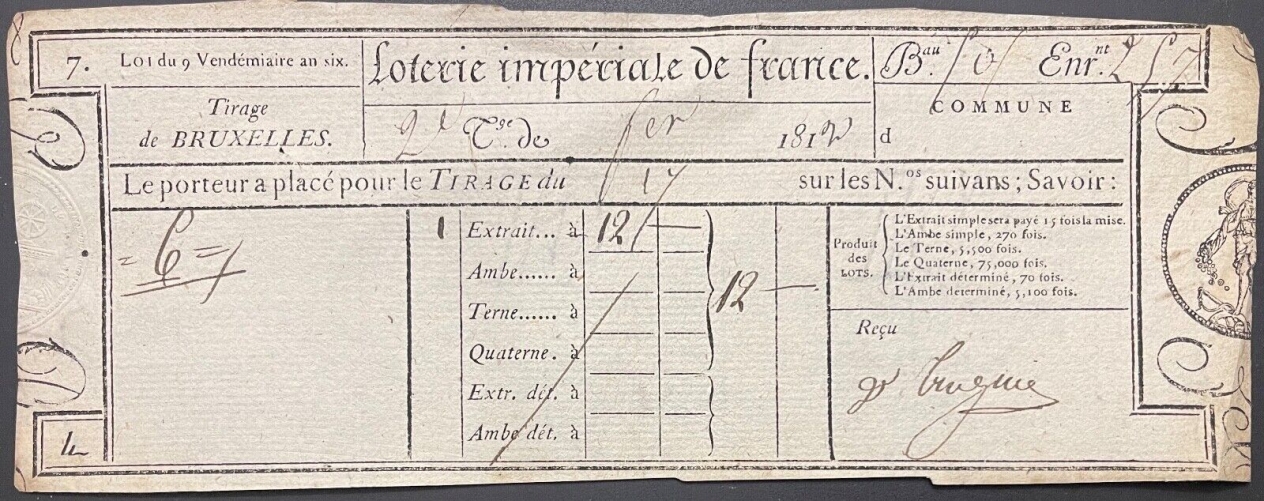 7. Loi du 9 Vendémiaire an six. Loterie impériale de france. B.au Enr.nt 257
Tirage
de BRUXELLES.
2e T.ge de fer 1812
COMMUNE
d
Le porteur a placé pour le TIRAGE du 17 sur les N.os suivans ; Savoir :
= 6 =
1 Extrait... à 12
Ambe...... à
Terne...... à
Quaterne. à
Extr. dét. à
Ambe dét. à
12 —
Produit
des
LOTS.
L'Extrait simple sera payé 15 fois la mise.
L'Ambe simple, 270 fois.
Le Terne, 5,500 fois.
Le Quaterne, 75,000 fois.
L'Extrait déterminé, 70 fois.
L'Ambe determiné, 5,100 fois.
Reçu
4